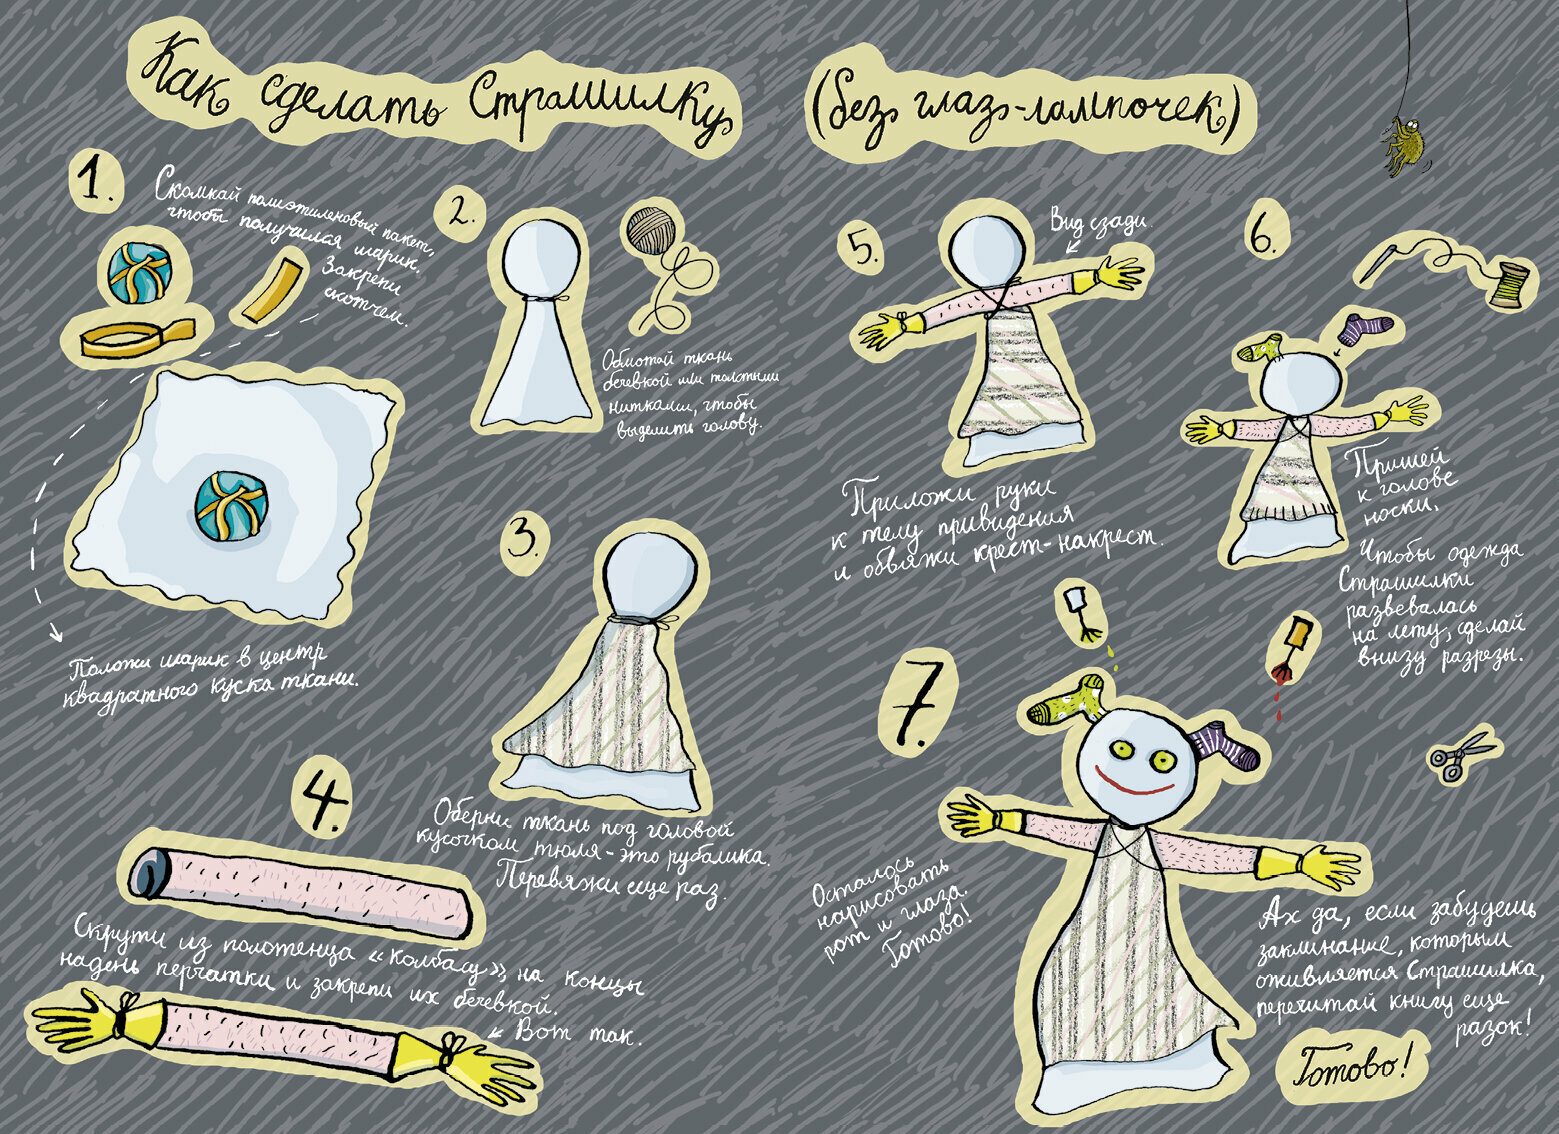 Как сделать Страшилку
(без глаз-лампочек)
1.
Скомкай полиэтиленовый пакет,
чтобы получился шарик.
Закрепи
скотчем.
Положи шарик в центр
квадратного куска ткани.
2.
Обмотай ткань
бечевкой или толстыми
нитками, чтобы
выделить голову.
3.
Оберни ткань под головой
кусочком тюля - это рубашка.
Перевяжи еще раз.
4.
Скрути из полотенца «колбасу», на концы
надень перчатки и закрепи их бечевкой.
Вот так.
5.
Вид сзади.
Приложи руки
к телу привидения
и обвяжи крест-накрест.
6.
Пришей
к голове
носки.
Чтобы одежда
Страшилки
развевалась
на лету, сделай
внизу разрезы.
7.
Осталось
нарисовать
рот и глаза.
Готово!
Ах да, если забудешь
заклинание, которым
оживляется Страшилка,
перечитай книгу еще
разок!
Готово!